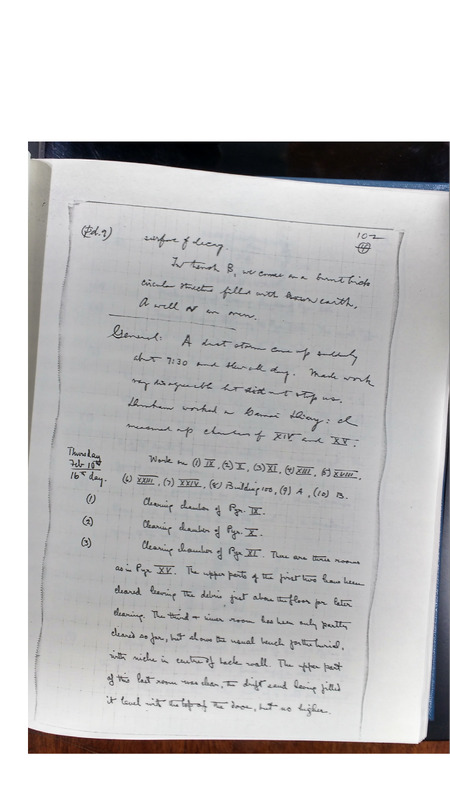 (Feb. 9) 102
surface of decay.
In trench B, we came on a burnt brick
circular structure filled with brown earth,
A well or an oven.
General: A dust storm came up suddenly
about 7:30 and blew all day. Made work
very disagreeable but did not stop us.
Dunham worked on Camera Diary: I
measured up chambers of XIV and XV.
Thursday
Feb 10th
16th day.
Work on (1) IX, (2) X, (3) XI, (4) XIII, (5) XVIII,
(6) XXIII, (7) XXIV, (8) Building 100, (9) A, (10) B.
(1) Clearing chamber of Pyr. IX.
(2) Clearing chamber of Pyr. X.
(3) Clearing chamber of Pyr. XI. There are three rooms
as in Pyr. XV. The upper parts of the first two have been
cleared leaving the debris just above the floor for later
clearing. The third or inner room has been only partly
cleared so far, but shows the usual bench for the burial,
with niche in centre of back wall. The upper part
of this last room was clear, the drift sand having filled
it level with the top of the door, but no higher.